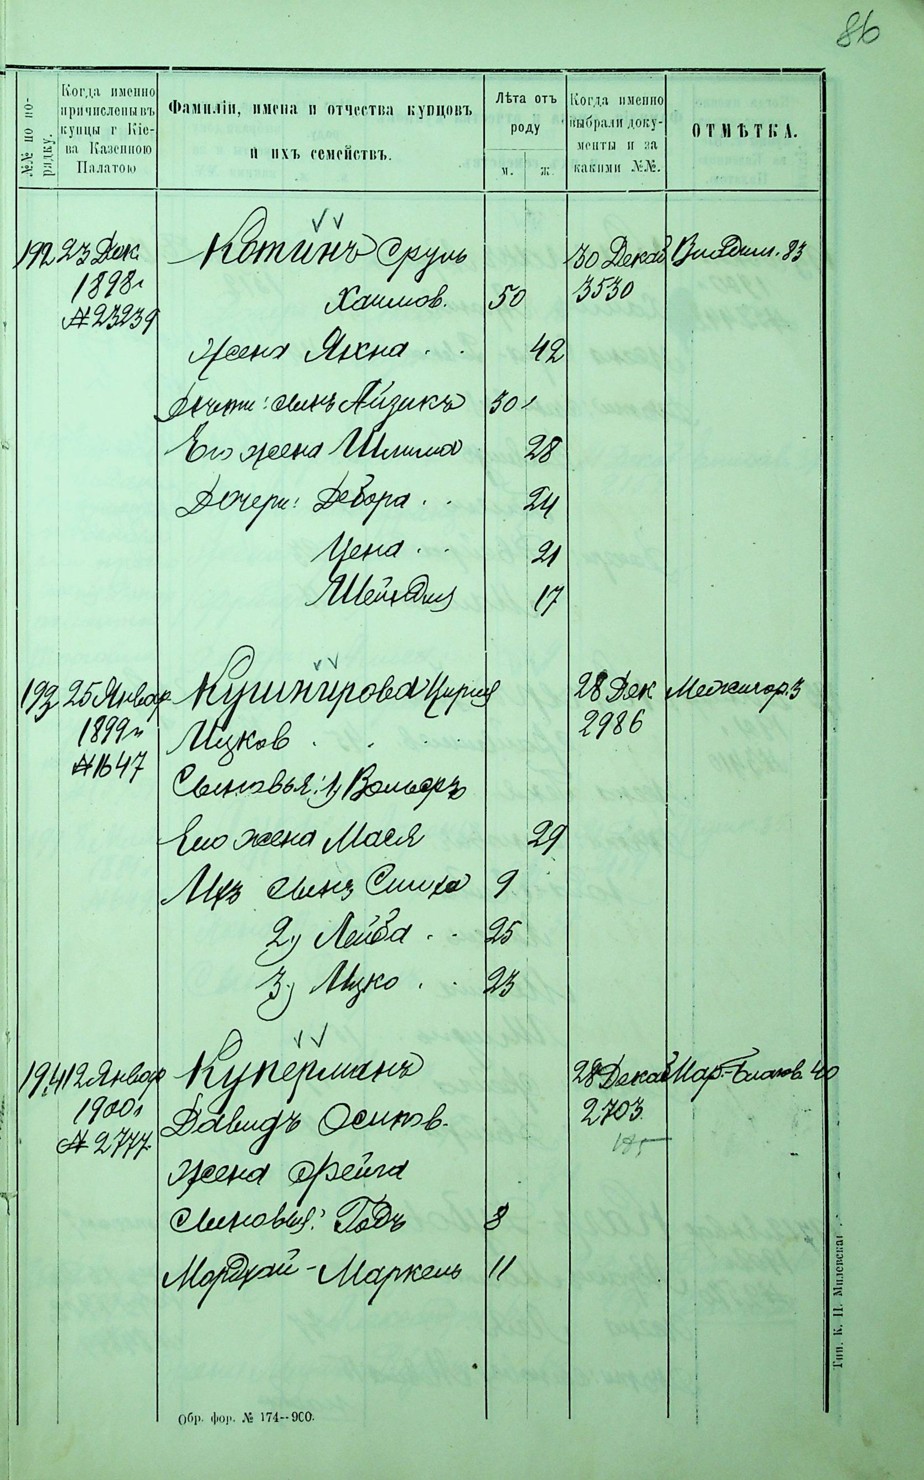 86
№№ по по-
рядку.
Когда именно
причислены въ
купцы г Кіе-
ва Казенною
Палатою
Фамиліи, имена и отчества купцовъ
и ихъ семействъ.
Лѣта отъ
роду
м.
ж.
Когда именно
выбрали доку-
менты и за
какими №№.
ОТМѢТКА.
192 23 Дек. Котинъ Сруль 30 Декаб 83
1898г Хаимов. 50 3530
№ 23239
Жена Яхна 42
сынъ Айзикъ 30
Его жена 28
Дочери: Девора 24
Цена 21
17
193 25 Январ Кушнирова 28 Дек Межигор. 3
1899г Ицков 2986
№ 1647
Сыновья: 1) Вольфъ
Его жена Мася 29
Ихъ сынъ Симха 9
2) Лейба 25
3) Ицко 23
194 12 Январ Куперманъ 28 Декаб Мар.-Благов. 40
1900г Давидъ Осипов. 2703
№ 2777
Жена Фейга
Сыновья: Годъ 8
Мордхай-Маркель 11
Обр. фор. № 174--900.
Тип. К. Н. Милевскаг